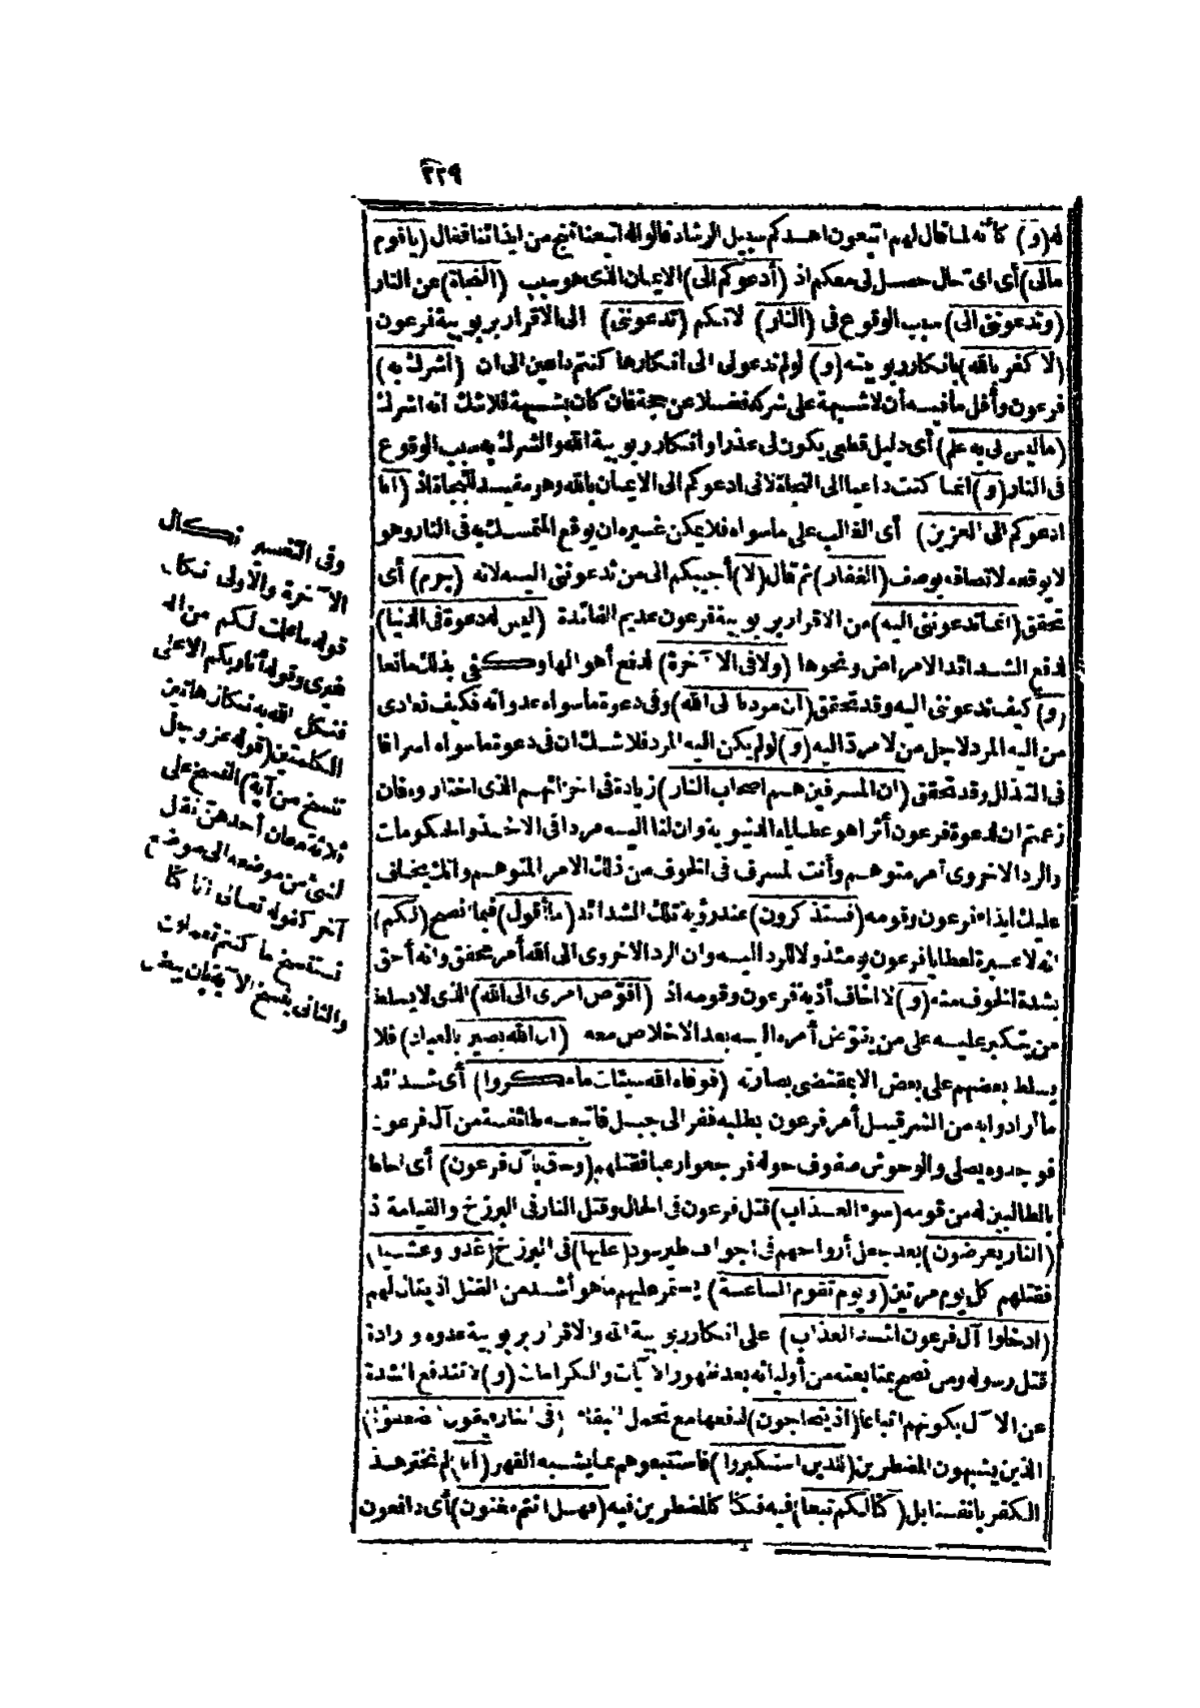 ٢٢٩
له (و) كأنه لما قال لهم اتبعون اهدكم سبيل الرشاد قالوا له اتبعنا تنج من ايذائنا فقال (ياقوم
مالى) أى اى حال حصل لى معكم اذ (أدعوكم الى) الايمان الذى هو سبب (النجاة) عن النار
(وتدعوننى الى) سبب الوقوع فى (النار) لانكم (تدعوننى) الى الاقرار بربوبية فرعون
(لا كفر بالله) بانكار ربوبيته (و) لو لم تدعونى الى انكارها كنتم داعين الى ان (أشرك به)
فرعون وأقل مافيه أن لاشبهة على شركه فضلا عن حجة فان كان بشبهة فلاشك انه اشرك
(ماليس لى به علم) أى دليل قطعى يكون لى عذرا وانكار ربوبية الله والشرك به سبب الوقوع
فى النار (و) انما كنت داعيا الى النجاة لانى ادعوكم الى الايمان بالله وهو مفيد للنجاة اذ (انا
ادعوكم الى العزيز) أى الغالب على ماسواه فلا يمكن غيره ان يوقع المتمسك به فى النار وهو
لا يوقعه لاتصافه بوصف (الغفار) ثم قال (لا) أجيبكم الى من تدعوننى اليه لانه (جرم) أى
تحقق (انما تدعوننى اليه) من الاقرار بربوبية فرعون عديم الفائدة (ليس له دعوة فى الدنيا)
لدفع الشدائد الامراض ونحوها (ولا فى الآخرة) لدفع أهوالها وكفى بذلك مانعا
(و) كيف تدعوننى اليه وقد تحقق (أن مردنا الى الله) وفى دعوة ماسواه عداوته فكيف نعادى
من اليه المرد لاجل من لا مرد اليه (و) لو لم يكن اليه المرد فلاشك ان فى دعوة ماسواه اسرافا
فى التذلل وقد تحقق (ان المسرفين هم اصحاب النار) زيادة فى اخزائهم الذى اختاروه فان
زعمتم ان لدعوة فرعون أثرا هو عطاياه الدنيوية وان لنا اليه مردا فى الاخذ والحكومات
والرد الاخروى أمر متوهم وأنت لمسرف فى الخوف من ذلك الامر المتوهم وانك يخاف
عليك ايذاء فرعون وقومه (فستذكرون) عند رؤية تلك الشدائد (ما أقول) فيما انصح (لكم)
انه لا عبرة لعطايا فرعون يومئذ ولا للرد اليه وان الرد الاخروى الى الله أمر متحقق وانه أحق
بشدة الخوف منه (و) لا اخاف أذية فرعون وقومه اذ (أفوض امرى الى الله) الذى لا يسلط
من يتكبر عليه على من يفوض أمره اليه بعد الاخلاص معه (ان الله بصير بالعباد) فلا
يسلط بعضهم على بعض الا بمقتضى بصارته (فوقاه الله سيئات مامكروا) أى شدائد
ما أرادوا به من الشر قيل أمر فرعون بطلبه ففر الى جبل فاتبعه طائفة من آل فرعون
فوجدوه يصلى والوحوش صفوف حوله فرجعوا رعبا فقتلهم (وحاق بآل فرعون) أى احاط
بالطالبين له من قومه (سوء العذاب) قتل فرعون فى الحال وقتل النار فى البرزخ والقيامة اذ
(النار يعرضون) بعد جعل أرواحهم فى اجواف طير سود (عليها) فى البرزخ (غدوا وعشيا)
فقتلهم كل يوم مرتين (ويوم تقوم الساعة) يستمر عليهم ما هو أشد من القتل اذ يقال لهم
(ادخلوا آل فرعون اشد العذاب) على انكار ربوبية الله والاقرار بربوبية عدوه وارادة
قتل رسوله ومن نصح بمتابعته من أوليائه بعد ظهور الآيات والكرامات (و) لا تندفع الشدة
عن الآل بكونهم اتباعا (اذ يتحاجون) لدفعها مع تحمل البقاء (فى النار فيقول الضعفاء)
الذين يشبهون المضطرين (للذين استكبروا) فاستتبعوهم بما يشبه القهر (انا) لم نختر هذا
الكفر بانفسنا بل (كنا لكم تبعا) فيه فكنا كالمضطرين فيه (فهل انتم مغنون) أى دافعون
وفى التفسير نكال
الآخرة والاولى نكال
قوله ما علمت لكم من اله
غيرى وقوله أنا ربكم الاعلى
فنكل الله به نكال هاتين
الكلمتين (قوله عز وجل
ننسخ من آية) النسخ على
ثلاثة معان أحدهن نقل
الشئ من موضعه الى موضع
آخر كقوله تعالى انا كنا
نستنسخ ما كنتم تعملون
والثانى ينسخ الآية بان يبطل